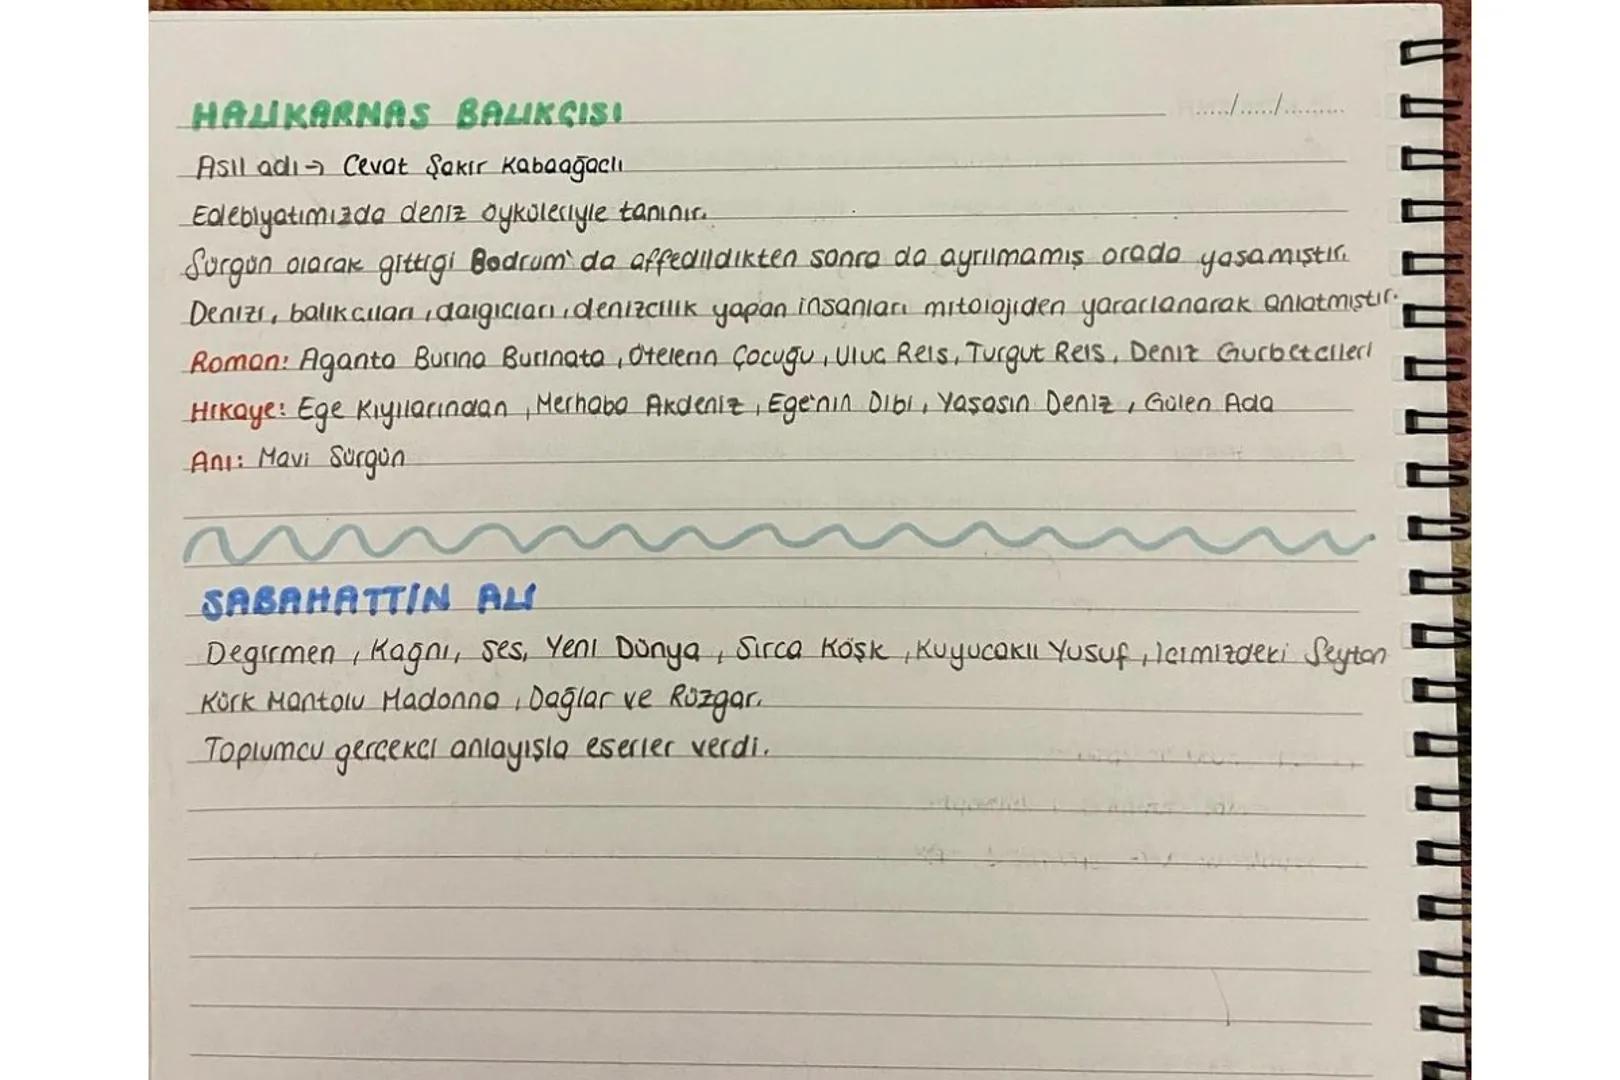 HALİKARNAS BALIKÇISI
...../...../.........
Asıl adı → Cevat Şakir Kabaağaçlı
Edebiyatımızda deniz öyküleriyle tanınır.
Sürgün olarak gittiği Bodrum'da affedildikten sonra da ayrılmamış orada yaşamıştır.
Denizi, balıkçıları, dalgıçları, denizcilik yapan insanları mitolojiden yararlanarak anlatmıştır.
Roman: Aganta Burina Burinata, Ötelerin Çocuğu, Uluç Reis, Turgut Reis, Deniz Gurbetçileri
Hikaye: Ege Kıyılarından, Merhaba Akdeniz, Ege'nin Dibi, Yaşasın Deniz, Gülen Ada
Anı: Mavi Sürgün
SABAHATTİN ALİ
Değirmen, Kağnı, Ses, Yeni Dünya, Sırça Köşk, Kuyucaklı Yusuf, İçimizdeki Şeytan
Kürk Mantolu Madonna, Dağlar ve Rüzgar.
Toplumcu gerçekçi anlayışla eserler verdi.